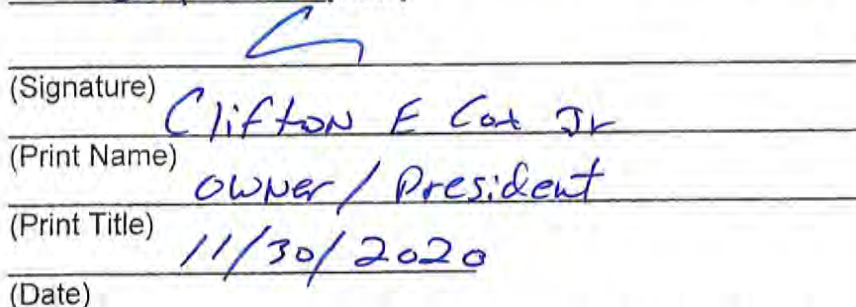 (Signature)
Clifton E Cox Jr
(Print Name)
owner / President
(Print Title)
11/30/2020
(Date)